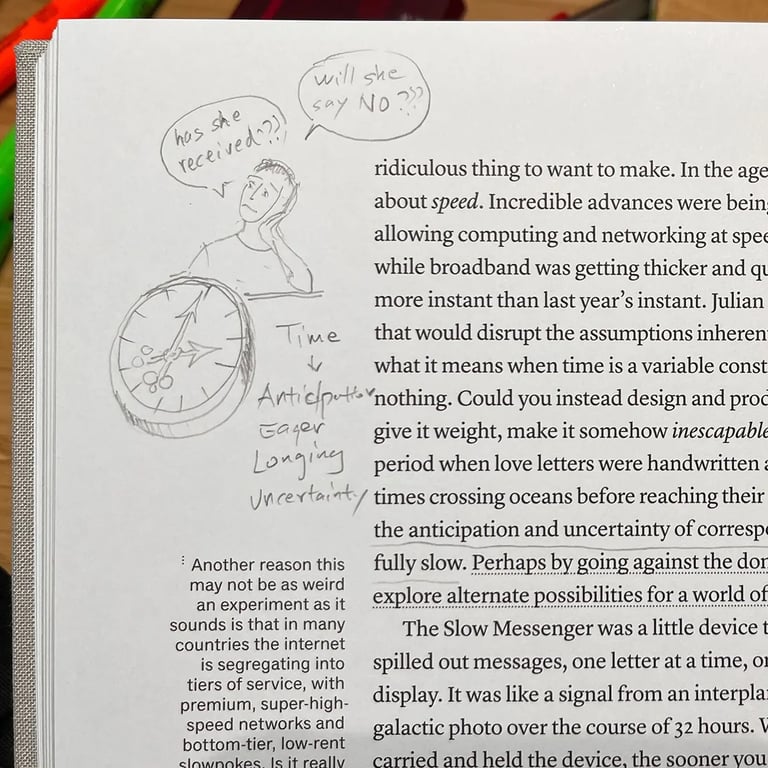 will she
say NO???
has she
received???
Time
Anticipation
Eager
Longing
Uncertainty
ridiculous thing to want to make. In the age
about speed. Incredible advances were bein
allowing computing and networking at spee
while broadband was getting thicker and qu
more instant than last year’s instant. Julian
that would disrupt the assumptions inheren
what it means when time is a variable const
nothing. Could you instead design and prod
give it weight, make it somehow inescapable
period when love letters were handwritten a
times crossing oceans before reaching their
the anticipation and uncertainty of corresp
fully slow. Perhaps by going against the dom
explore alternate possibilities for a world of
The Slow Messenger was a little device t
spilled out messages, one letter at a time, o
display. It was like a signal from an interpla
galactic photo over the course of 32 hours. W
carried and held the device, the sooner you
Another reason this
may not be as weird
an experiment as it
sounds is that in many
countries the internet
is segregating into
tiers of service, with
premium, super-high-
speed networks and
bottom-tier, low-rent
slowpokes. Is it really